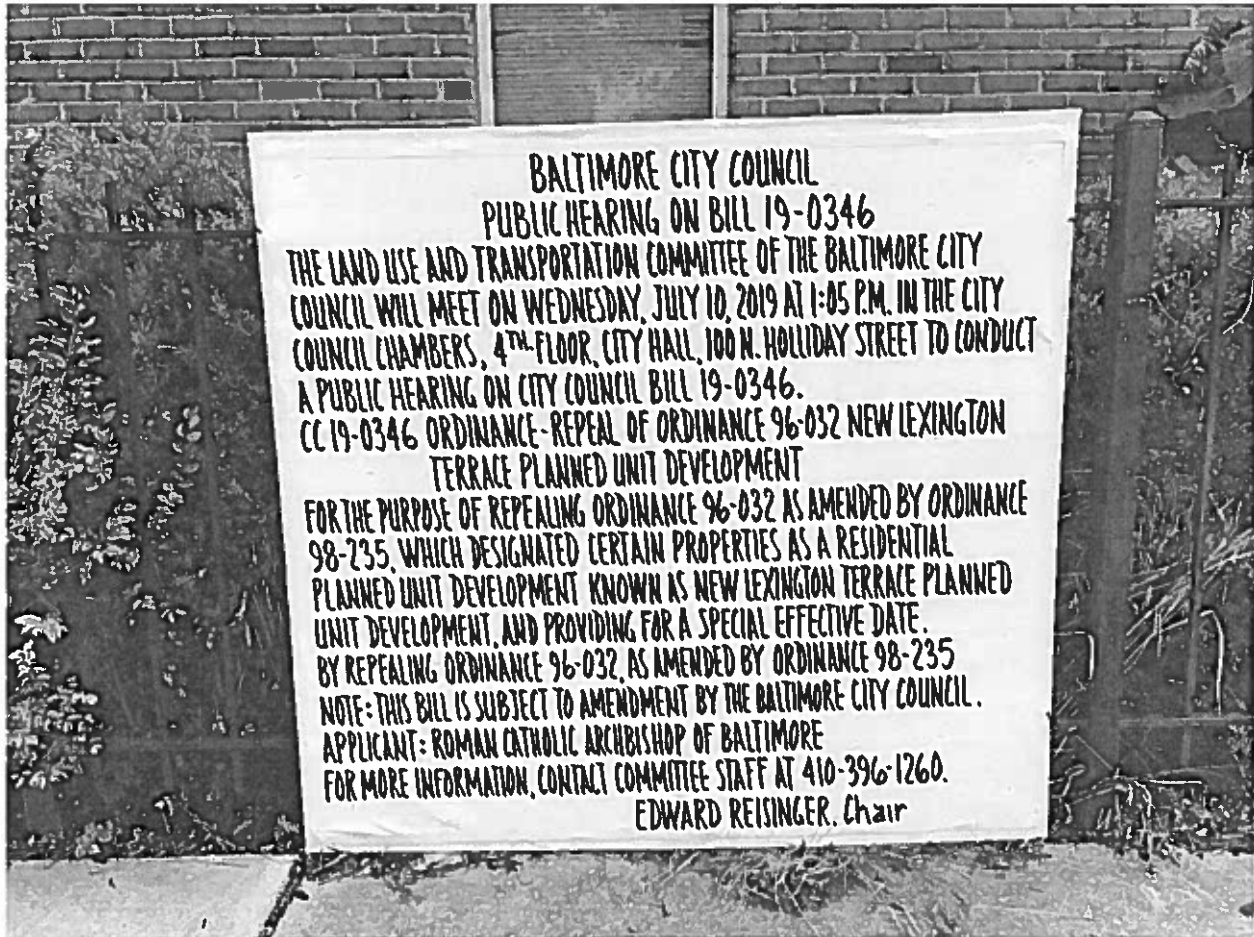 BALTIMORE CITY COUNCIL
PUBLIC HEARING ON BILL 19-0346
THE LAND USE AND TRANSPORTATION COMMITTEE OF THE BALTIMORE CITY
COUNCIL WILL MEET ON WEDNESDAY, JULY 10, 2019 AT 1:05 P.M. IN THE CITY
COUNCIL CHAMBERS, 4TH FLOOR, CITY HALL, 100 N. HOLLIDAY STREET TO CONDUCT
A PUBLIC HEARING ON CITY COUNCIL BILL 19-0346.
CC 19-0346 ORDINANCE-REPEAL OF ORDINANCE 96-032 NEW LEXINGTON
TERRACE PLANNED UNIT DEVELOPMENT
FOR THE PURPOSE OF REPEALING ORDINANCE 96-032 AS AMENDED BY ORDINANCE
98-235, WHICH DESIGNATED CERTAIN PROPERTIES AS A RESIDENTIAL
PLANNED UNIT DEVELOPMENT KNOWN AS NEW LEXINGTON TERRACE PLANNED
UNIT DEVELOPMENT, AND PROVIDING FOR A SPECIAL EFFECTIVE DATE.
BY REPEALING ORDINANCE 96-032, AS AMENDED BY ORDINANCE 98-235
NOTE: THIS BILL IS SUBJECT TO AMENDMENT BY THE BALTIMORE CITY COUNCIL.
APPLICANT: ROMAN CATHOLIC ARCHBISHOP OF BALTIMORE
FOR MORE INFORMATION, CONTACT COMMITTEE STAFF AT 410-396-1260.
EDWARD REISINGER. Chair